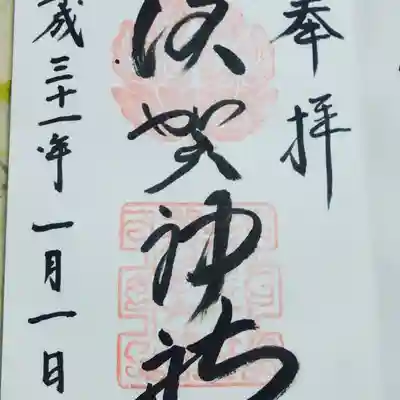 奉拝
須賀神社
成三十一年一月一日